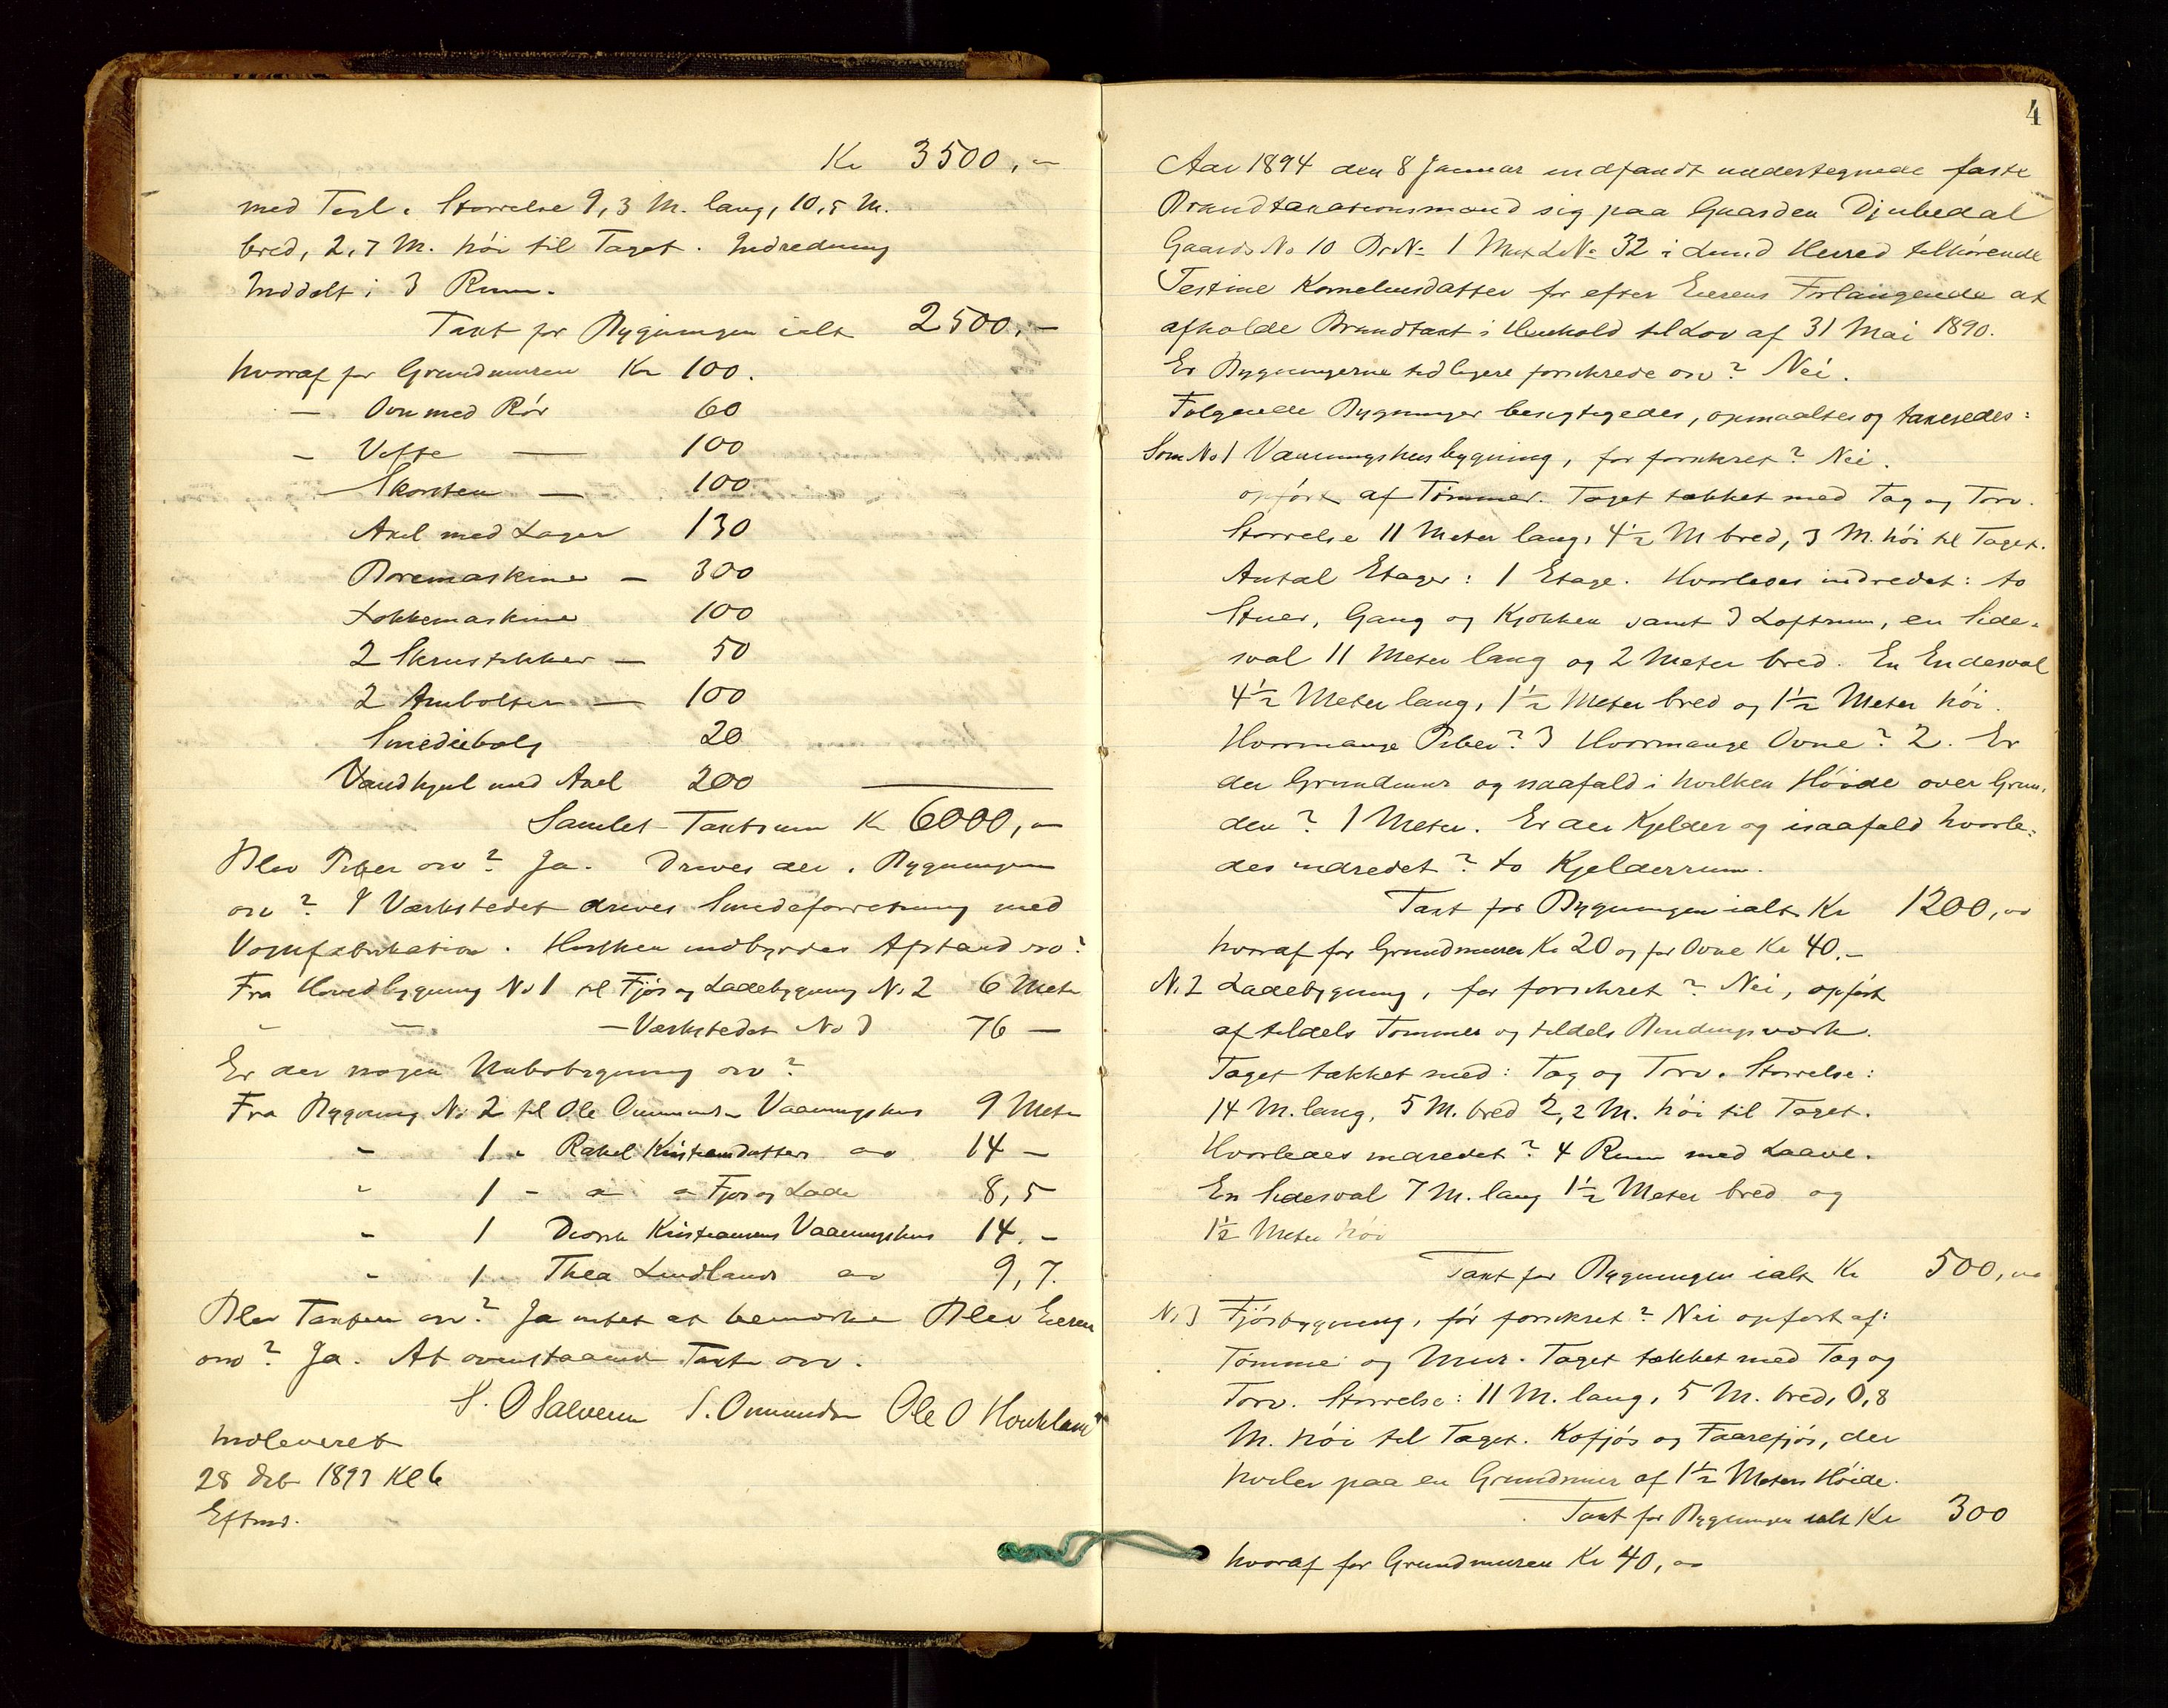 Kr 3500,-
med Tegl. Størrelse 9,3 M. lang, 10,5 M.
bred, 2,7 M. høi til Taget. Indredning
Inddelt i 3 Rum.
Taxt for Bygningen ialt 2500,-
hvoraf for Grundmuren Kr 100.
— Ovn med Rør 60
— Veffe — 100
— Skorsten — 100
Axel med Lager 130
Boremaskine — 300
Lokkemaskine 100
2 Skrustikker — 50
2 Ambolter — 100
Smediebælg 20
Vandhjul med Axel 200
Samlet Taxtsum Kr 6000,-
Blev Piber osv? Ja. Drives der i Bygningen
osv? I Værkstedet drives Smedeforretning med
Vognfabrikation. Hvilken indbyrdes Afstand osv?
Fra Hovedbygning No 1 til Fjøs og Ladebygning No 2 6 Meter
— — — Værkstedet No 3 76 —
Er der nogen Nabobygning osv?
Fra Bygning No 2 til Ole Ommunds. Vaaningshus 9 Meter
" 1 " Rakel Kristiansdatter " 14 —
" 1 - " " Fjøs og Lade 8,5
" 1 Kristiansens Vaaningshus 14.-
" 1 - Thea Lindlands " 9,7.
Blev Taxten osv? Ja intet at bemærke Blev Eieren
osv? Ja. At ovenstaaende Taxt osv.
S. O Salvesen S. Ommundsen Ole O Haukland
Indleveret
28 Deb 1893 Kl 6
Eftmd.
4
Aar 1894 den 8 Januar indfandt undertegnede faste
Brandtaxationsmænd sig paa Gaarden Djubedal
Gaards No 10 Br No 1 Mat L No 32 i Lund Herred tilhørende
Testine Kornelusdatter for efter Eierens Forlangende at
afholde Brandtaxt i Henhold til Lov af 31 Mai 1890.
Er Bygningerne tidligere forsikrede osv? Nei.
Følgende Bygninger besigtigedes, opmaaltes og taxeredes:
Som No 1 Vaaningshusbygning, før forsikret? Nei.
opført af Tømmer. Taget tækket med Tag og Torv.
Størrelse 11 Meter lang, 4½ M bred, 3 M. høi til Taget.
Antal Etager: 1 Etage. Hvorledes indredet: to
Stuer, Gang og Kjøkken samt 3 Loftrum, en Side-
sval 11 Meter lang og 2 Meter bred. En Endesval
4½ Meter lang, 1½ Meter bred og 1½ Meter høi.
Hvormange Piber? 3 Hvormange Ovne? 2. Er
der Grundmur og isaafald i hvilken Høide over Grun-
den? 1 Meter. Er der Kjelder og isaafald hvorle-
des indredet? to Kjelderrum.
Taxt for Bygningen ialt Kr 1200,00
hvoraf for Grundmuren Kr 20 og for Ovne Kr 40.-
No 2 Ladebygning, før forsikret? Nei, opført
af tildels Tømmer og tildels Bindingsværk.
Taget tækket med: Tag og Torv. Størrelse:
14 M. lang, 5 M. bred 2,2 M. høi til Taget.
Hvorledes indredet? 4 Rum med Laave.
En Sidesval 7 M. lang 1½ Meter bred og
1½ Meter høi
Taxt for Bygningen ialt Kr 500,00
No 3 Fjøsbygning, før forsikret? Nei opført af:
Tømmer og Mur. Taget tækket med Tag og
Torv. Størrelse: 11 M. lang, 5 M. bred, 0,8
M. høi til Taget. Kofjøs og Faarefjøs, der
hviler paa en Grundmur af 1½ Meters Høide.
Taxt for Bygningen ialt Kr 300
hvoraf for Grundmuren Kr 40,00